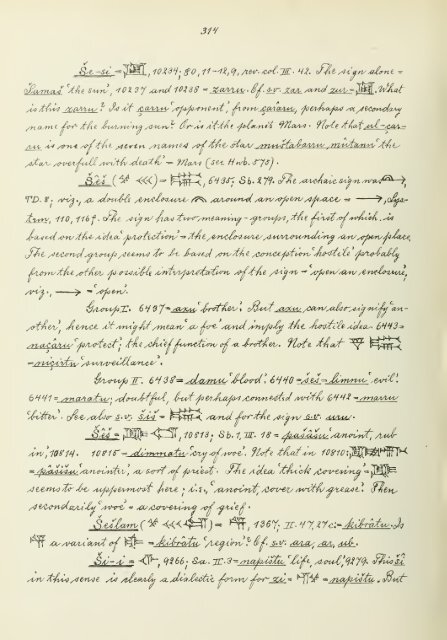 314
Še-si = , 10234; 80, 11-12, 9, rev. col. III. 42. The sign alone =
Šamaš 'the sun', 10237 and 10238 = zarru. Cf. s.v. zar and zur = . What
is this zarru? Is it çarru 'opponent', from çarâru, perhaps a secondary
name for the burning sun? Or is it the planet Mars. Note that ul-çar-
ru is one of the seven names of the star muštabarru mûtanu 'the
star overfull with death' = Mars (see Hwb. 573).
Šeš ( ) = , 6435; Sb. 279. The archaic sign was ,
TD. 8; viz., a double enclosure around an open space = ,
110, 116 f. The sign has two meaning-groups, the first of which is
based on the idea 'protection' = the enclosure surrounding an open place.
The second group seems to be based on the conception 'hostile' probably
from the other possible interpretation of the sign = 'open an enclosure,
viz., = 'open'.
Group I. 6437 = axu 'brother'. But axu can also signify 'an-
other', hence it might mean 'a foe' and imply the hostile idea. 6443 =
naçâru 'protect'; the chief function of a brother. Note that
= niçirtu 'surveillance'.
Group II. 6438 = damu 'blood'. 6440 = šeš = limnu 'evil'.
6441 = maratu; doubtful, but perhaps connected with 6442 = marru
'bitter'. See also s.v. šiš = and for the sign s.v. uru.
Šeš = , 10813; Sb. 1, III. 18 = pašâšu 'anoint, rub
in', 10814. 10815 = dimmatu 'cry of woe'. Note that in 10810;
= pâšišu 'anointer', a sort of priest. The idea 'thick covering' =
seems to be uppermost here; i.e., 'anoint, cover with grease'. Then
secondarily 'woe' = a covering of grief.
Šešlam ( ) = , 1367; II. 47, 27 c; = kibrâtu. Is
a variant of = kibrâtu 'region'? Cf. s.v. ara, ar, ub.
Ši-i = , 9266; Sa. II. 3 = napištu 'life, soul', 9279. This ši
in this sense is clearly a dialectic form for zi = = napištu. But